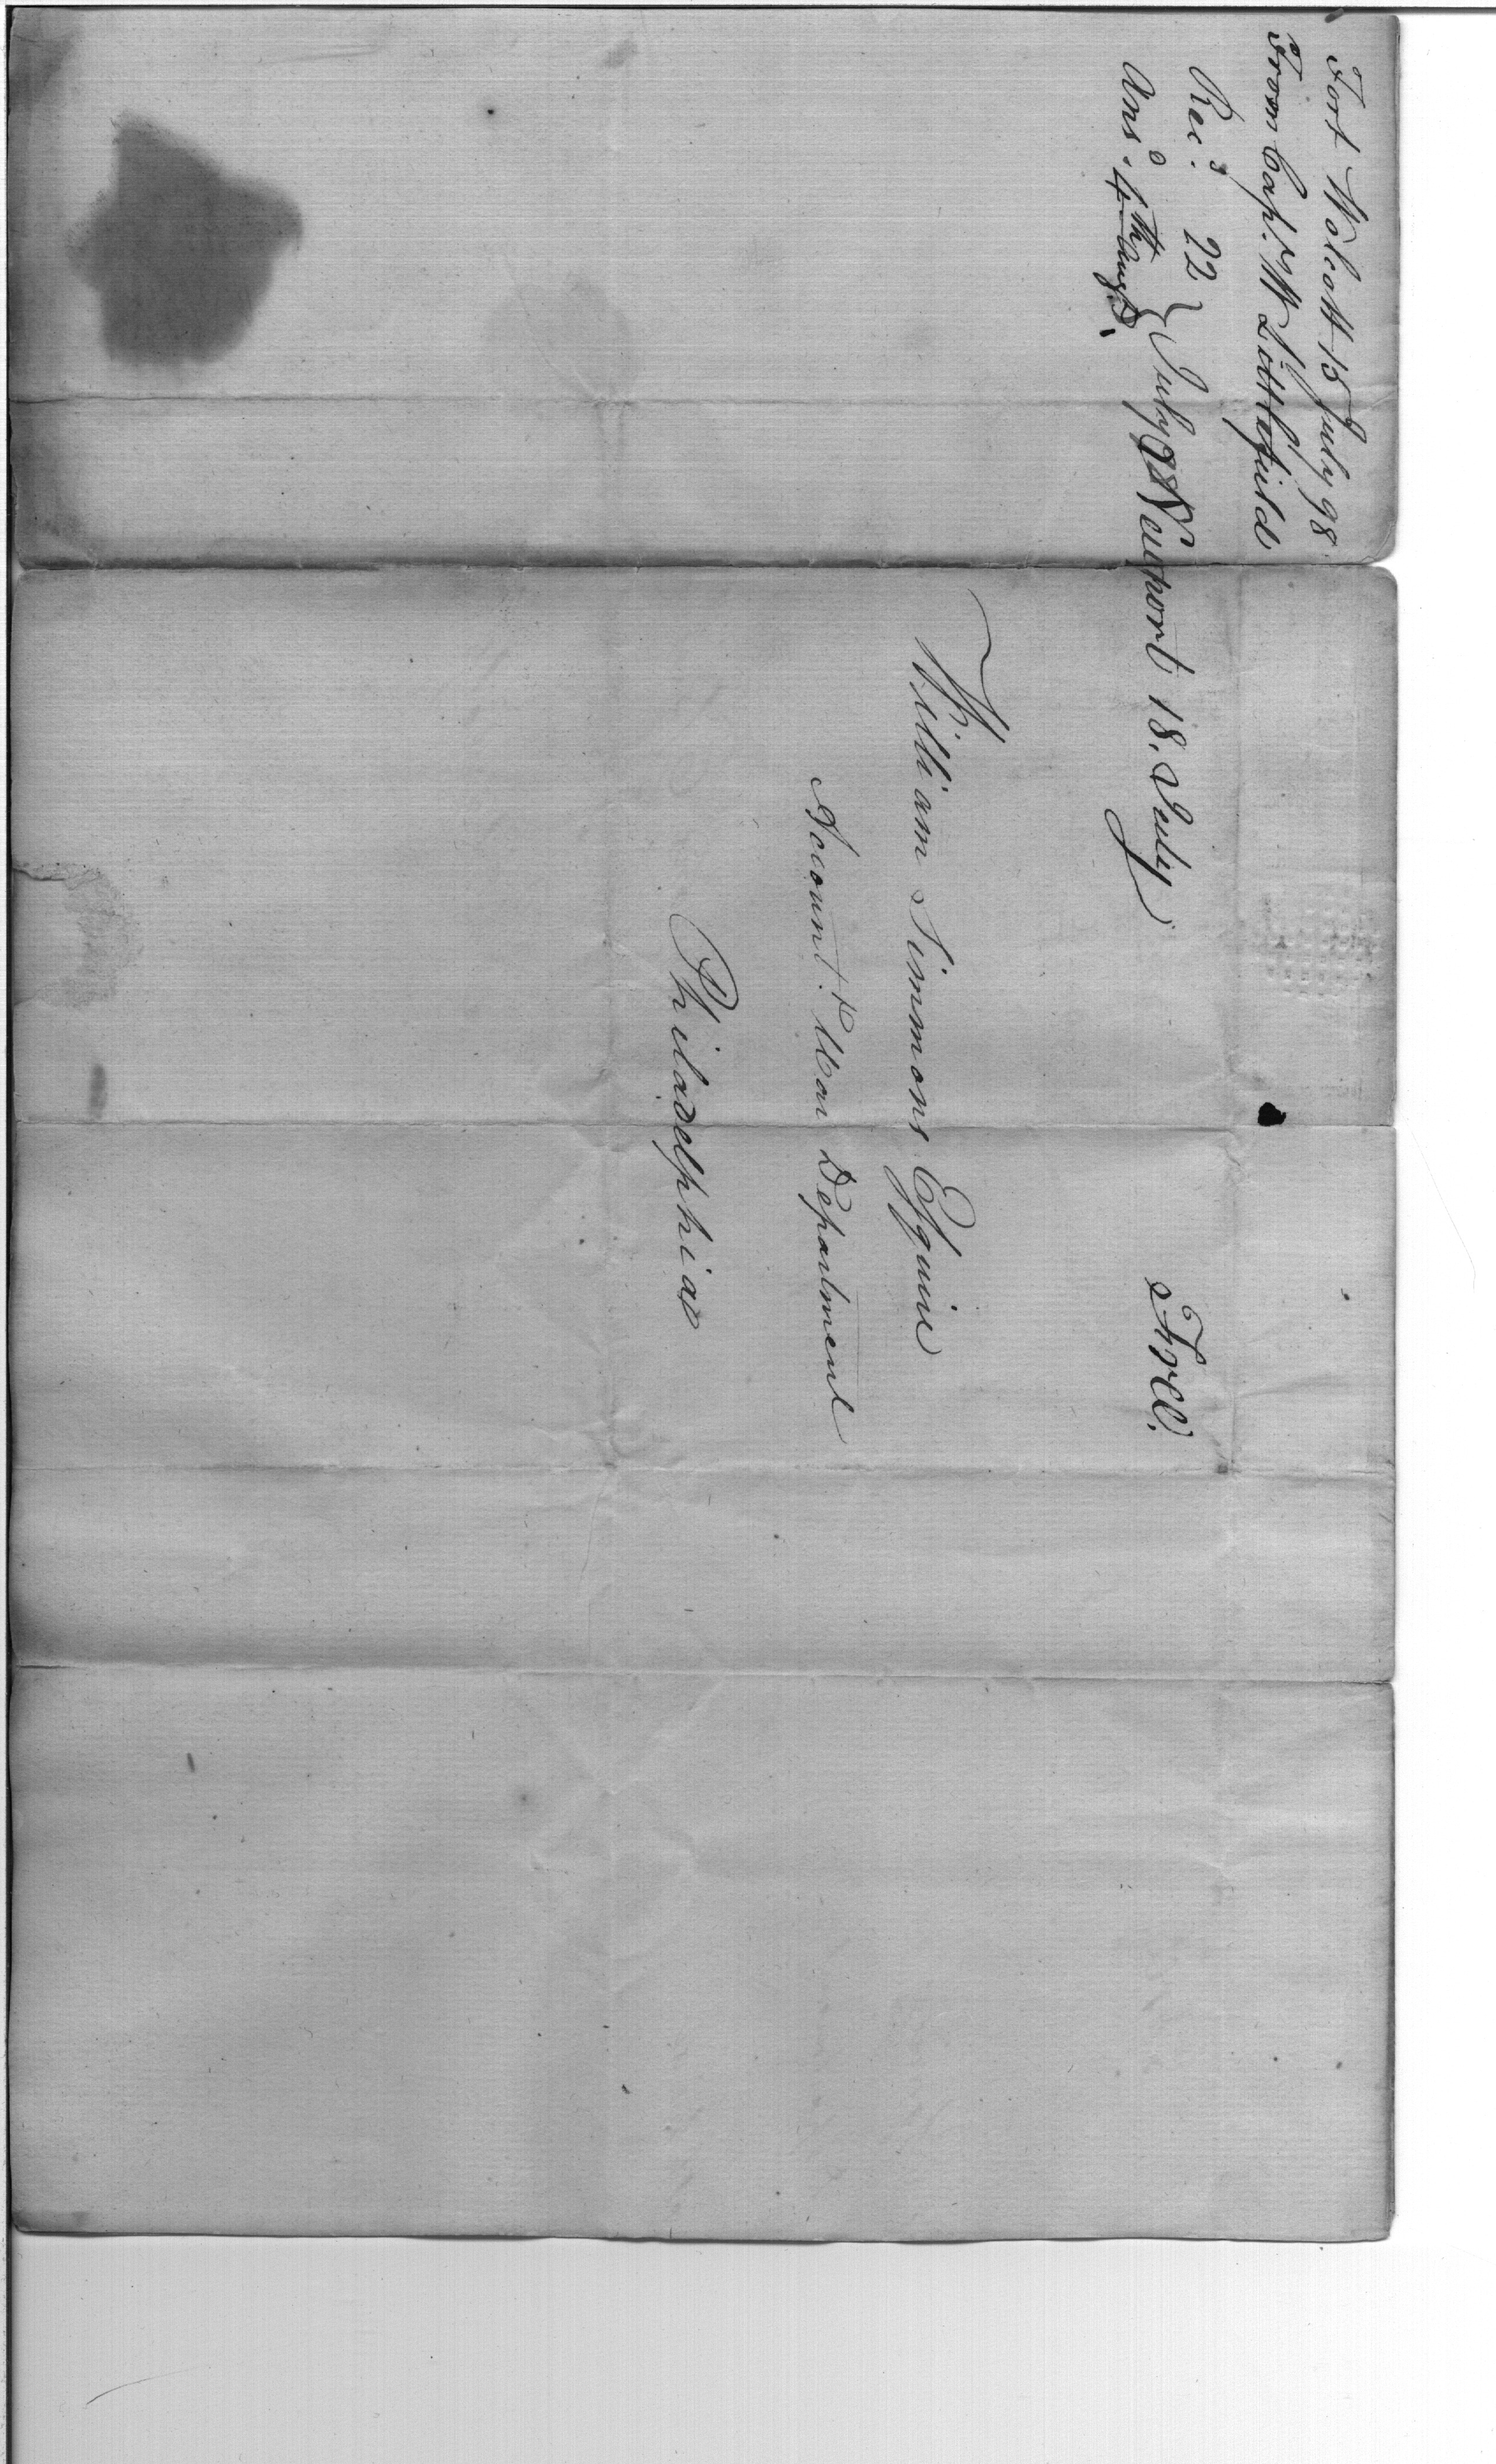 Fort Wolcott 15 July 98
From Cap.ᵗ Wᵐ Littlefield
Rec.ᵈ 22 } July 98
Ansᵈ. 4ᵗʰ Augᵗ.
Newport 18. July
Free.
William Simmons Esquire
Account.ᵗ War Department
Philadelphia